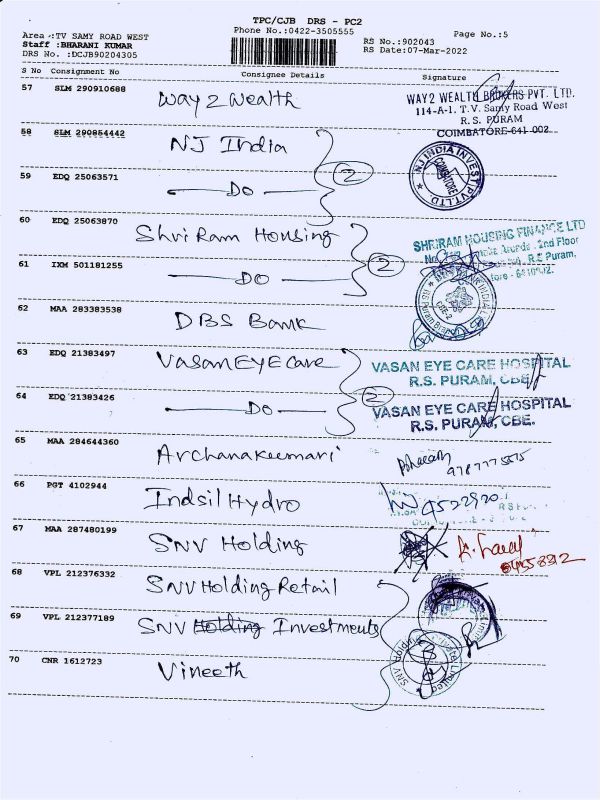 TPC/CJB DRS - PC2
Phone No.:0422-3505555
Page No.:5
Area :TV SAMY ROAD WEST
Staff :BHARANI KUMAR
DRS No. :DCJB90204305
RS No.:902043
RS Date:07-Mar-2022
S No Consignment No Consignee Details Signature
57 SLM 290910688 Way 2 Wealth
WAY2 WEALTH BROKERS PVT. LTD.
114-A-1, T.V. Samy Road West
R.S. PURAM
COIMBATORE-641 002
58 SLM 290854442 NJ India
NJ INDIA INVEST PVT LTD.
COIMBATORE
59 EDQ 25063571 DO 2
60 EDQ 25063870 Shri Ram Housing
SHRIRAM HOUSING FINANCE LTD
2nd Floor
R.S Puram,
61 IXM 501181255 DO 2
62 MAA 283383538 DBS Bank
63 EDQ 21383497 Vasan EYE care
VASAN EYE CARE HOSPITAL
R.S. PURAM, CBE.
64 EDQ 21383426 DO 2
VASAN EYE CARE HOSPITAL
R.S. PURAM, CBE.
65 MAA 284644360 Archanakumari
66 PGT 4102944 Indsil Hydro
67 MAA 287480199 SNV Holding
68 VPL 212376332 SNV Holding Retail
69 VPL 212377189 SNV Holding Investments
70 CNR 1612723 Vineeth